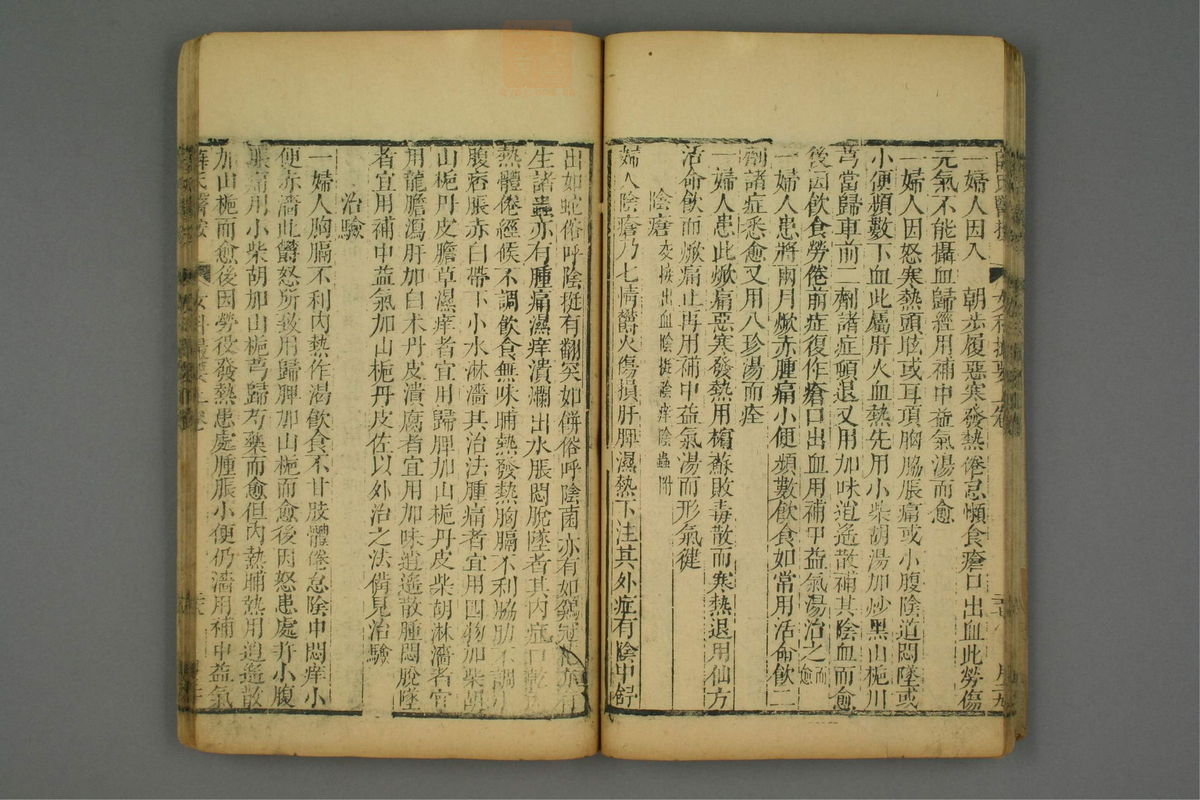 一婦人因入 朝步履惡寒發熱倦怠懶食瘡口出血此勞傷
元氣不能攝血歸經用補中益氣湯而愈
一婦人因怒寒熱頭眩或耳項胸脇脹痛或小腹陰道悶墜或
小便頻數下血此屬肝火血熱先用小柴胡湯加炒黑山梔川
芎當歸車前二劑諸症頓退又用加味逍遙散補其陰血而愈
後因飲食勞倦前症復作瘡口出血用補中益氣湯治之而愈
一婦人患將兩月焮赤腫痛小便頻數飲食如常用活命飲二
劑諸症悉愈又用八珍湯而痊
一婦人患此焮痛惡寒發熱用檳蘇敗毒散而寒熱退用仙方
活命飲而焮痛止再用補中益氣湯而形氣健
陰瘡 交接出血陰挺陰痒陰蟲附
婦人陰瘡乃七情鬱火傷損肝脾濕熱下注其外症有陰中舒
出如蛇俗呼陰挺有翻突如餅俗呼陰菌亦有如鷄冠
生諸蟲亦有腫痛濕痒潰爛出水脹悶脫墜者其內症口乾
熱體倦經候不調飲食無味晡熱發熱胸膈不利脇肋不調小
腹痞脹赤白帶下小水淋濇其治法腫痛者宜用四物加柴胡
山梔丹皮膽草濕痒者宜用歸脾加山梔丹皮柴胡淋濇者宜
用龍膽瀉肝加白术丹皮潰腐者宜用加味逍遙散腫悶脫墜
者宜用補中益氣加山梔丹皮佐以外治之法備見治驗
治驗
一婦人胸膈不利內熱作渴飲食不甘肢體倦怠陰中悶痒小
便赤濇此鬱怒所致用歸脾加山梔而愈後因怒患處并小腹
脹痛用小柴胡加山梔芎歸芍藥而愈但內熱晡熱用逍遙散
加山梔而愈後因勞役發熱患處腫脹小便仍濇用補中益氣
薛氏醫案